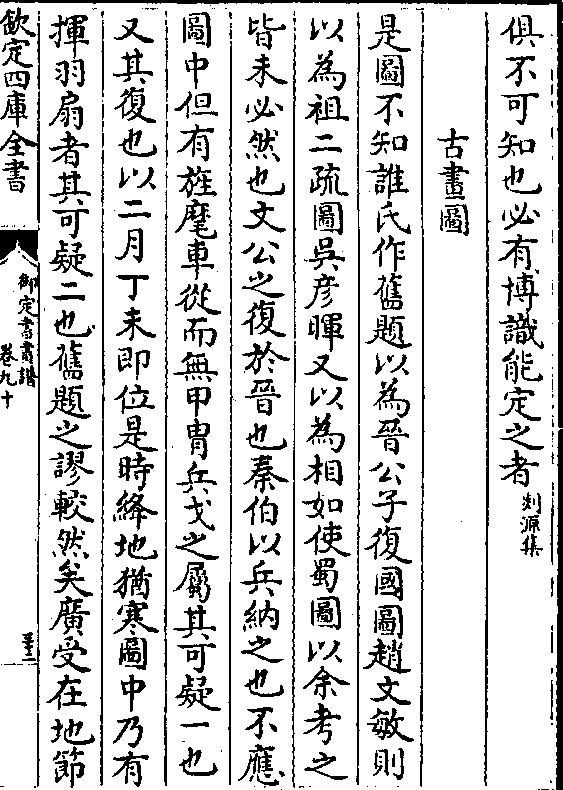 俱不可知也必有博識能定之者剡源集
古畫圖
是圖不知誰氏作舊題以為晉公子復國圖趙文敏則
以為祖二疏圖吳彦暉又以為相如使蜀圖以余考之
皆未必然也文公之復於晉也秦伯以兵納之也不應
圖中但有旌麾車從而無甲胄兵戈之屬其可疑一也
又其復也以二月丁未即位是時絳地猶寒圖中乃有
揮羽扇者其可疑二也舊題之謬較然矣廣受在地節
欽定四庫全書
御定書畫譜
卷九十